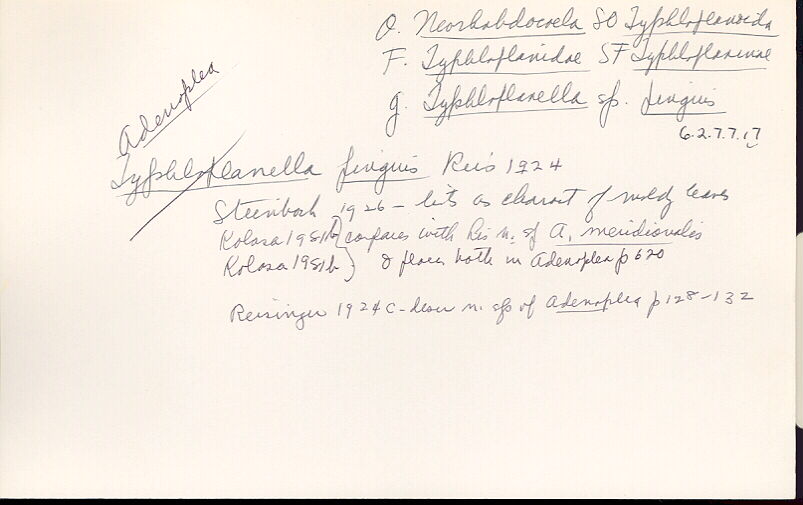 O. Neorhabdocoela SO Typhloplanoida
F. Typhloplanidae SF Typhloplaninae
g. Typhloplanella sp. pinguis
6.2.7.7.17
Adenoplea
Typhloplanella pinguis Reis 1924
Steinbock 1926 – lists as charact of moldy leaves
Kolasa 1981b compares with his n. sp A. meridionalis
Kolasa 1981b & places both in Adenoplea p 620
Reisinger 1924 c – descr n. sp of Adenoplea p 128–132